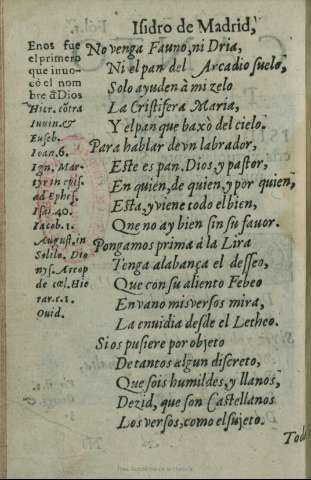 Isidro de Madrid,
Enos fue
el primero
que inuo-
có el nom
bre d̃ Dios
Hier. cõtra
Iuuin. &
Euseb.
Ioan. 6.
Ign. Mar-
tyr in epis.
ad Ephes.
Isai. 40.
Iacob. 1.
August. in
Solilo. Dio
nys. Areop
de cœl. Hie
rar. c. 1.
Ouid.
No venga Fauno, ni Dria,
Ni el pan del Arcadio suelo,
Solo ayuden à mi zelo
La Cristifera Maria,
Y el pan que baxò del cielo.
Para hablar de vn labrador,
Este es pan, Dios, y pastor,
En quien, de quien, y por quien,
Esta, y viene todo el bien,
Que no ay bien sin su fauor.
Pongamos prima à la Lira
Tenga alabança el desseo,
Que con su aliento Febeo
En vano mis versos mira,
La enuidia desde el Letheo.
Si os pusiere por objeto
De tantos algun discreto,
Que sois humildes, y llanos,
Dezid, que son Castellanos
Los versos, como el sujeto.
Tod